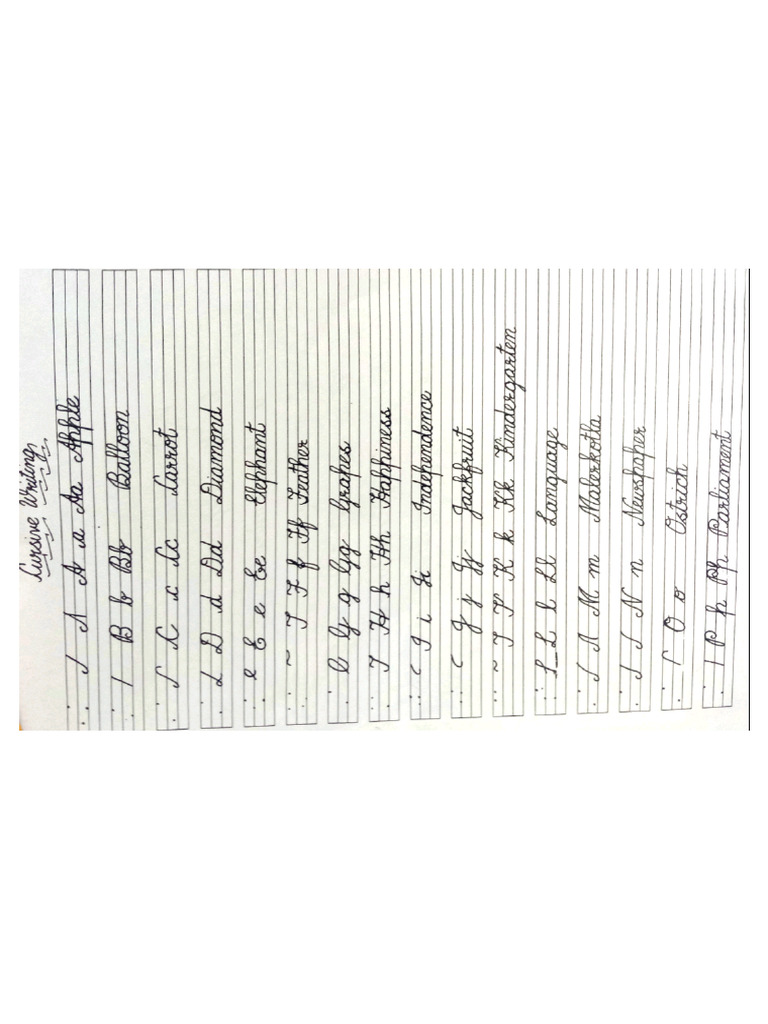 Cursive Writing
A A a Aa Apple
B b Bb Balloon
C c Cc Carrot
D d Dd Diamond
E e Ee Elephant
F f Ff Feather
G g Gg Grapes
H h Hh Happiness
I i Ii Independence
J j Jj Jackfruit
K k Kk Kindergarten
L l Ll Language
M m Malerkotla
N n Newspaper
O o Ostrich
P p Pp Parliament